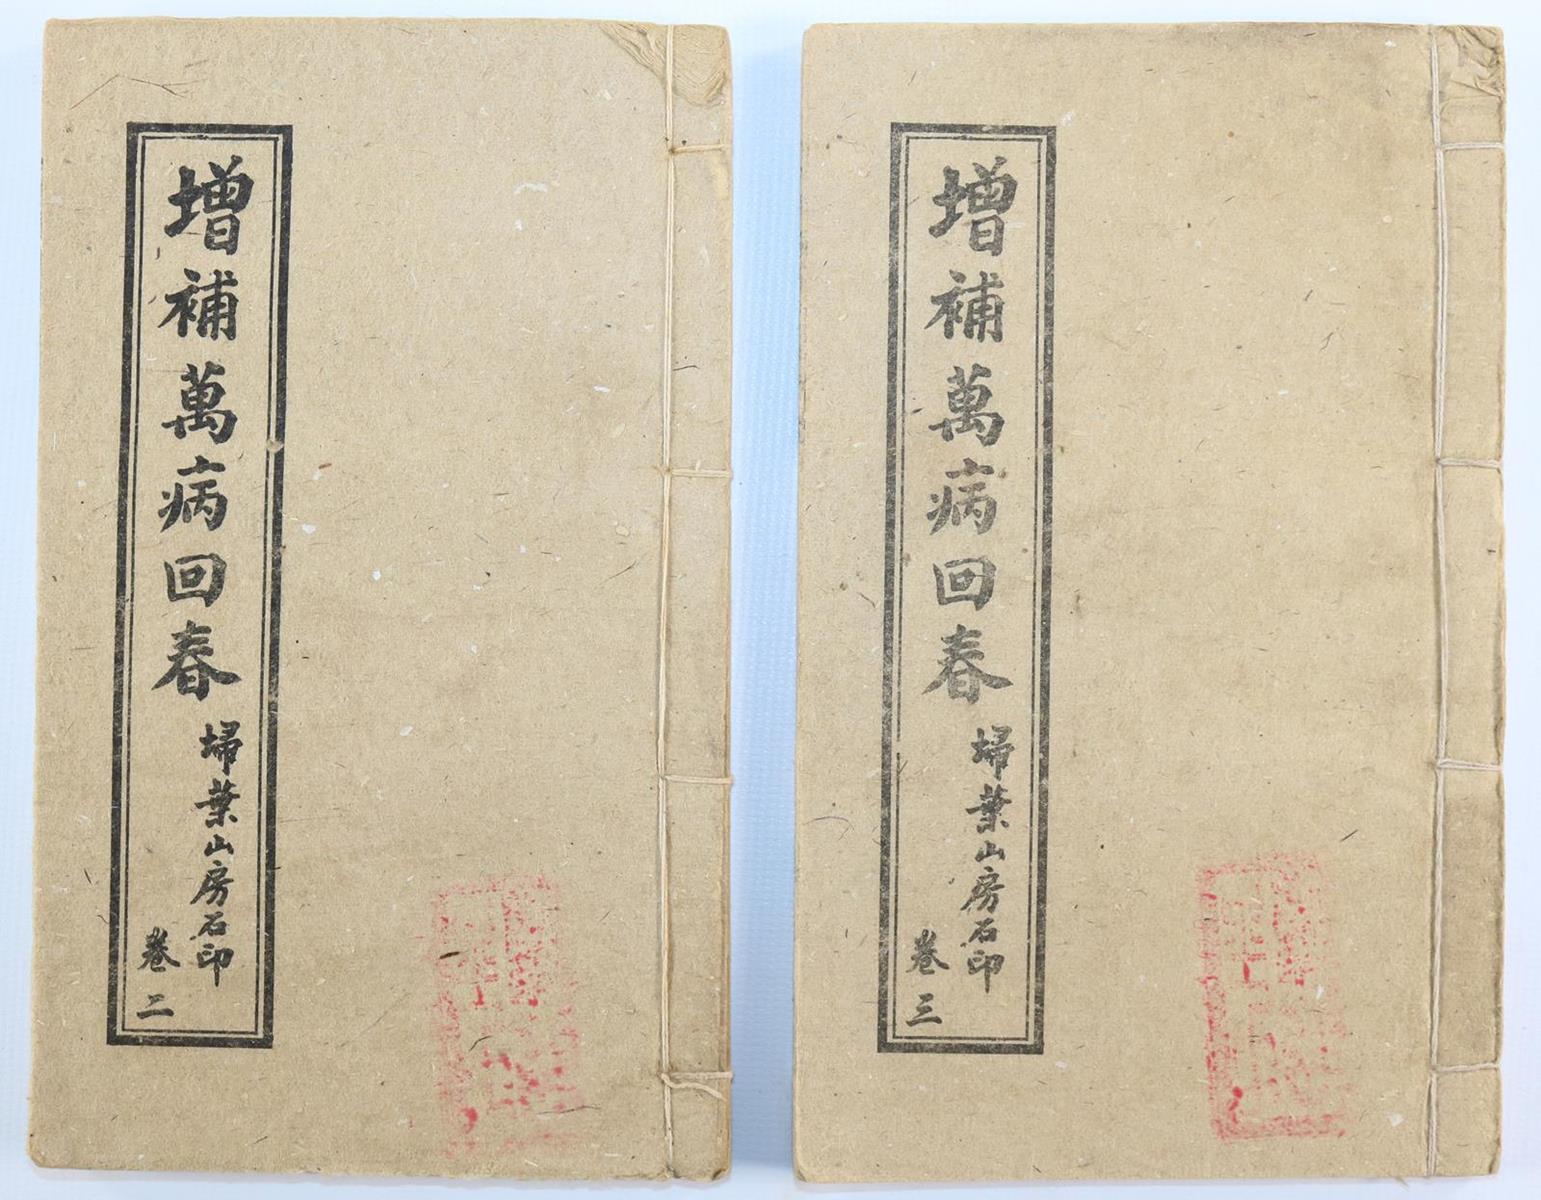 增補萬病回春
埽葉山房石印
卷二
增補萬病回春
埽葉山房石印
卷三